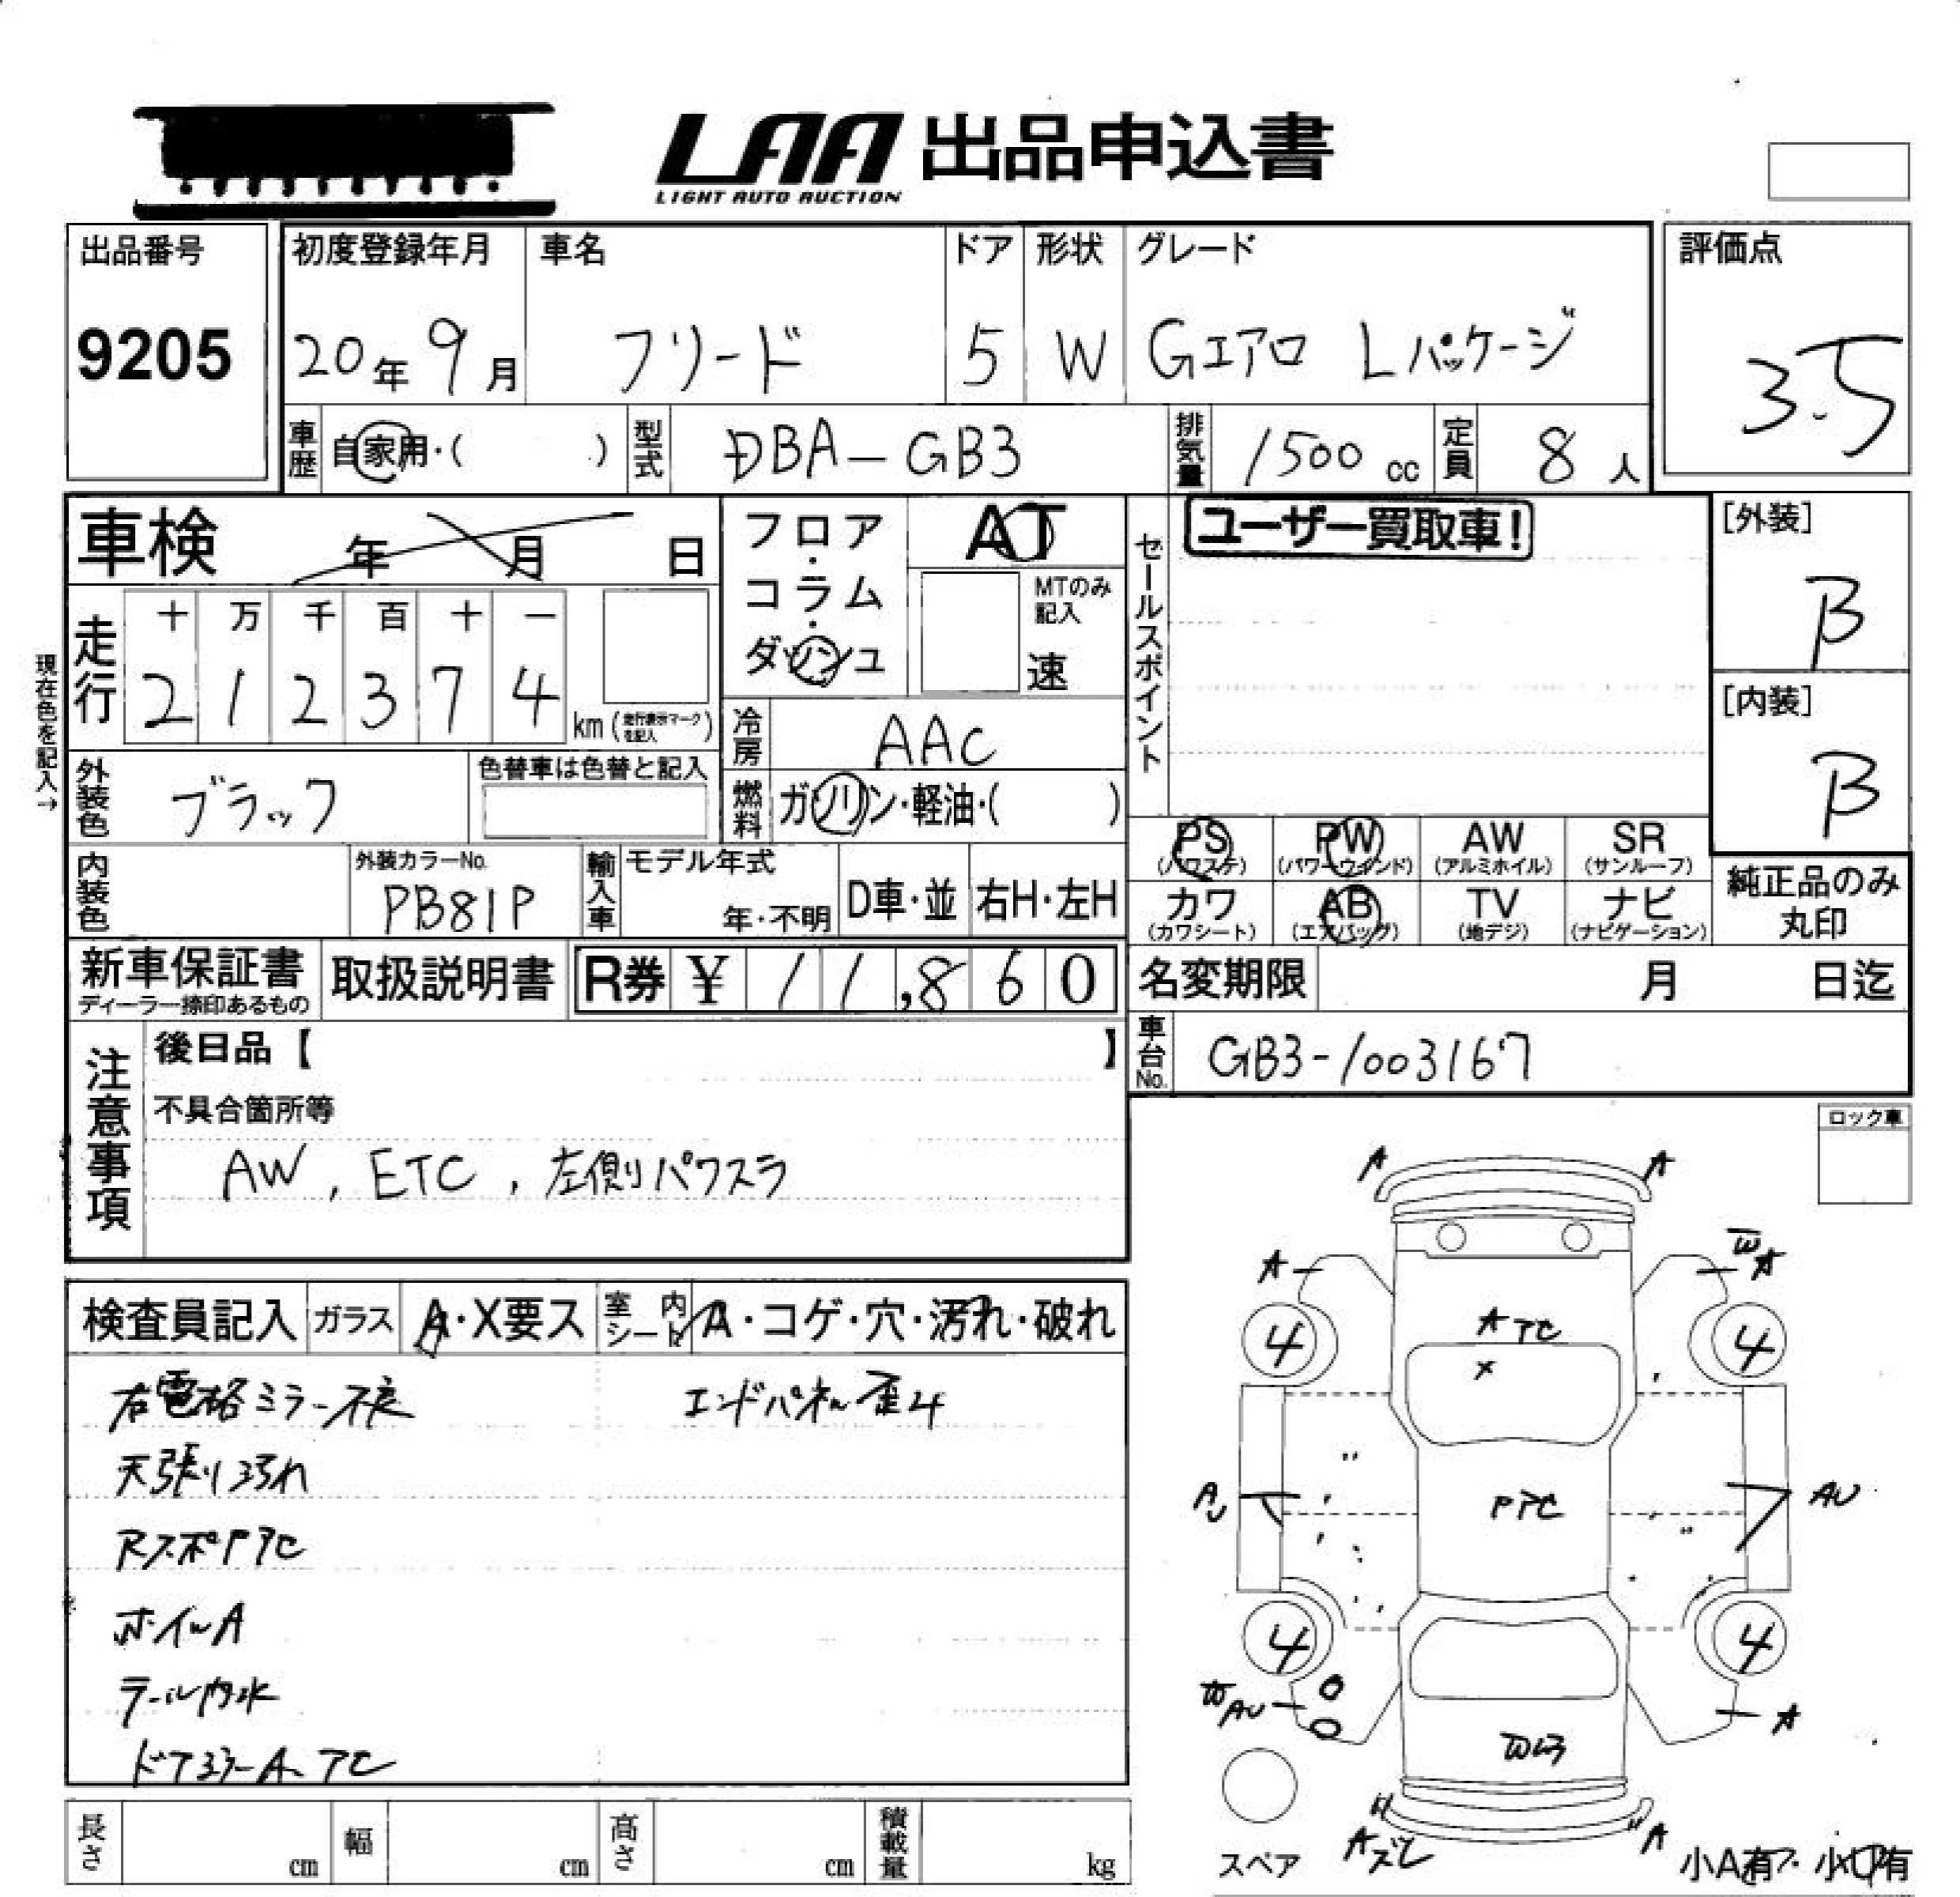 LAA 出品申込書
LIGHT AUTO AUCTION
出品番号
9205
初度登録年月
20年 9月
車名
フリード
ドア
5
形状
W
グレード
Gエアロ Lパッケージ
評価点
3.5
車歴
自家用・( )
型式
DBA-GB3
排気量
1500 cc
定員
8 人
車検 年 月 日
フロア・コラム・ダッシュ
AT
MTのみ記入
速
セールスポイント
ユーザー買取車!
[外装]
B
[内装]
B
現在色を記入→
走行
十 万 千 百 十 一
2 1 2 3 7 4
km (走行表示マークを記入)
冷房
AAC
外装色
ブラック
色替車は色替と記入
燃料
ガソリン・軽油・( )
PS (パワステ)
PW (パワーウインド)
AW (アルミホイル)
SR (サンルーフ)
カワ (カワシート)
AB (エアバッグ)
TV (地デジ)
ナビ (ナビゲーション)
純正品のみ
丸印
内装色
外装カラーNo.
PB81P
輸入車
モデル年式
年・不明
D車・並
右H・左H
新車保証書
ディーラー捺印あるもの
取扱説明書
R券 ¥ 11,860
名変期限 月 日迄
車台No.
GB3-1003167
注意事項
後日品【 】
不具合箇所等
AW, ETC, 左側パワスラ
ロック車
検査員記入
ガラス
A・X要ス
室内シート
A・コゲ・穴・汚れ・破れ
右電格ミラー不良
エンドパネル歪み
天張り汚れ
RスポPアC
ホイルA
テール内水
ドアミラーA アC
A
A
A
W A
4
4
A アC
X
AU
PアC
AU
4
4
W AU
A
W
Aズレ
A
スペア
小A有
小U有
長さ cm
幅 cm
高さ cm
積載量 kg